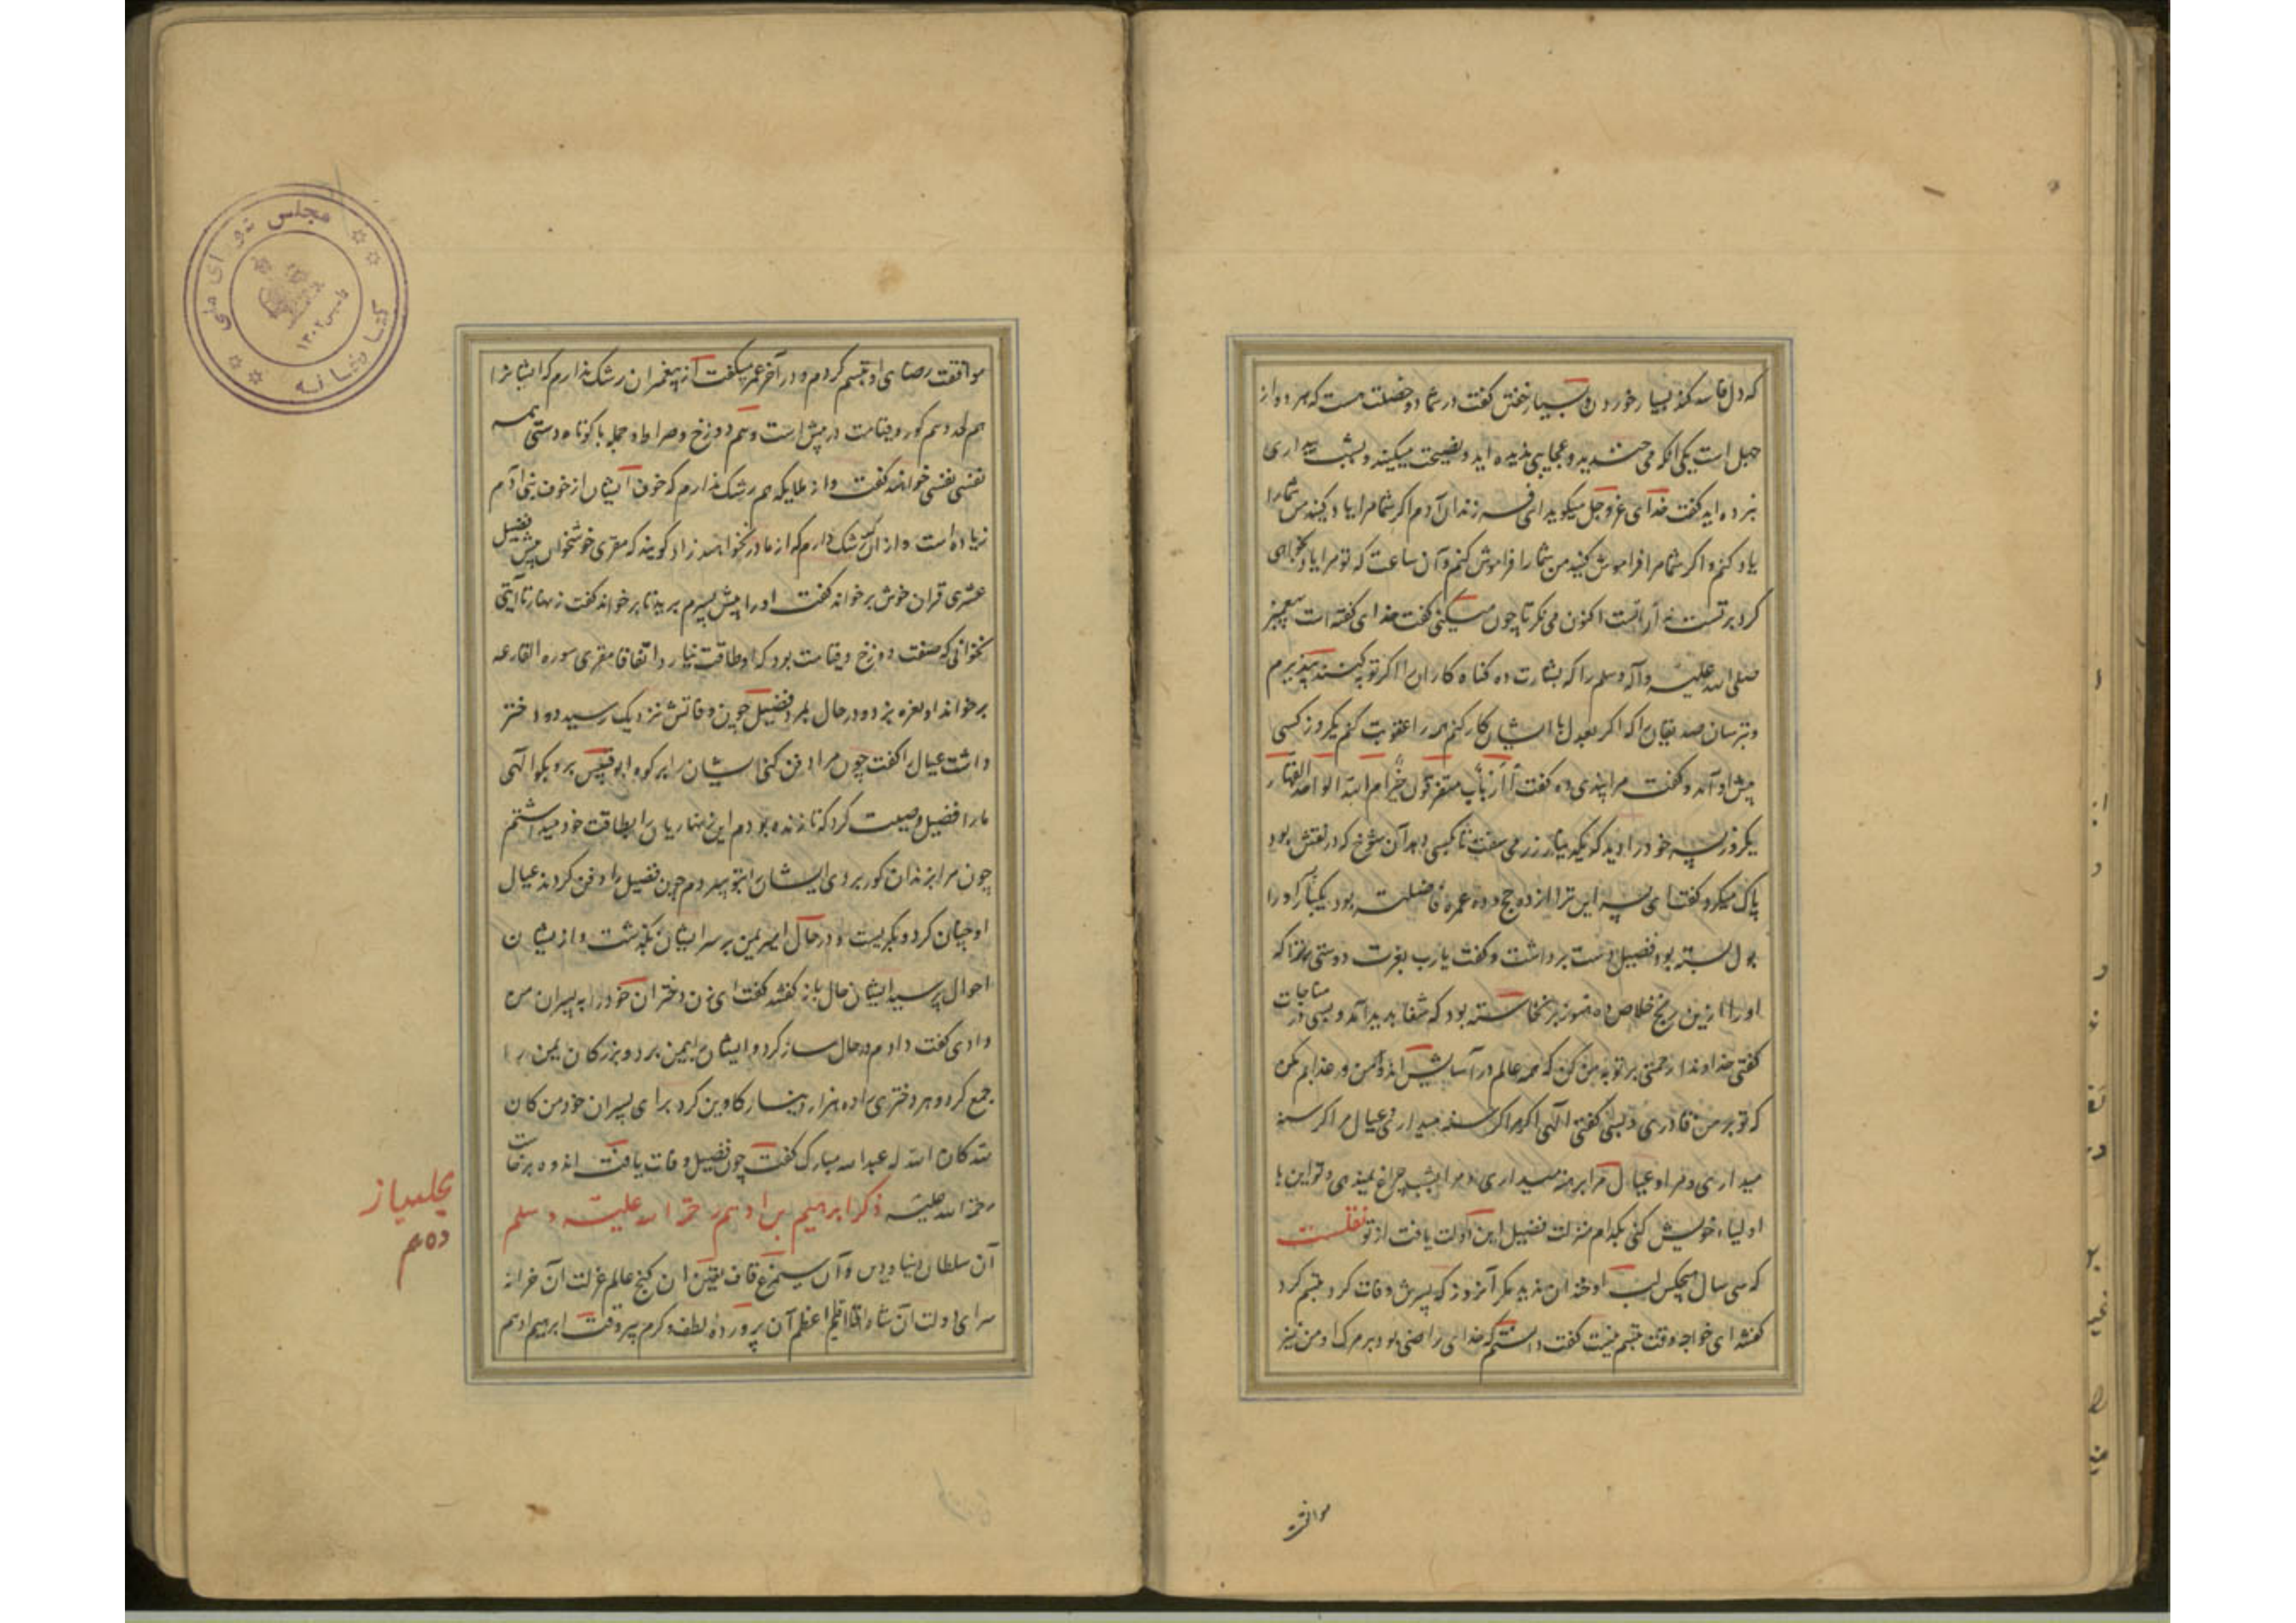 که دل فاسد کند بسیار خوردن و بسیار خفتن گفت در شما دو خصلت هست که هر دو از
جهل است یکی آنکه می خندید و عجایبی ندیده اید و نصیحت میکنید و بشب بیداری
نبرده اید گفت خدای عز و جل میگوید ای فرزندان آدم اکر شما مرا یاد کنید من شما را
یاد کنم و اکر شما مرا فراموش کنید من شما را فراموش کنم و آن ساعت که تو مرا یاد نخواهی
کرد بر تست نه از آن تست اکنون می نکر تا چون میکنی گفت خدای گفته است پیغمبر
صلی الله علیه و آله و سلم را که بشارت ده کناه کاران را اکر توبه کنند بپذیرم
و بترسان صدیقان را که اکر بعدل با ایشان کار کنم همه را عقوبت کنم یکروز کسی
پیش او آمد و گفت مرا پندی ده گفت أأرباب متفرقون خیر ام الله الواحد القهار
یکروز پسر خود را دید که یکدینار زر می سخت تا بکسی دهد آن شوخ که در نقش بود
پاک میکرد گفت ای پسر این ترا از ده حج و ده عمره فاضلتر بود یکبار او را
بول بسته بود فضیل دست برداشت و گفت یا رب بعزت دوستی من ترا که
او را ازین رنج خلاص ده هنوز برنخاسته بود که شفا پدید آمد و بسی در مناجات
گفتی خداوندا رحمتی بر تو به من کن که همه عالم در آسایش اند و من در عذابم مکن
که تو بر من قادری و بسی گفتی الهی اکر مرا کرسنه میداری و عیال مرا کرسنه
میداری و مرا و عیال مرا برهنه میداری و مرا بشب چراغ نمیدهی و تو این با
اولیاء خویش کنی بکدام منزلت فضیل این دولت یافت از تو نقلست
که سی سال هیچکس لب او خندان ندید مکر آنروز که پسرش وفات کرد تبسم کرد
گفتند ای خواجه وقت تبسم نیست گفت دانستم که خدای راضی بود بمرک او من نیز
موافقت
موافقت رضای او تبسم کردم و در آخر عمر میکفت از پیغمبران رشک ندارم که ایشانرا
هم لحد و هم کور و قیامت در پیش است و هم دوزخ و صراط و جمله با کوتاه دستی همه
نفسی نفسی خوانند گفت و از ملایکه هم رشک ندارم که خوف ایشان از خوف بنی آدم
زیاده است و از آن کس رشک دارم که از مادر نخواهد زاد کویند که مقری خوشخوان پیش فضیل
عشری قران خوش برخواند گفت او را پیش پسرم برید تا برخواند گفت زنهار تا آیتی
نخوانی که صفت دوزخ و قیامت بود که او طاقت نیارد اتفاقا مقری سوره القارعه
برخواند او نعره بزد و در حال بمرد فضیل چون وفاتش نزدیک رسید دو دختر
داشت عیال را گفت چون مرا دفن کنی ایشان را بر کوه ابو قبیس بر و بکو الهی
مارا فضیل وصیت کرد که تا زنده بودم این زنهاریان را بطاقت خود میداشتم
چون مرا بزندان کور بردی ایشان را بتو سپردم چون فضیل را دفن کردند عیال
او چنان کرد و بکریست و در حال امیر یمن بر سر ایشان بکذشت و از ایشان
احوال پرسید ایشان حال باز گفتند گفت ای زن دختران خود را به پسران من
دادی گفت دادم در حال ساز کرد و ایشان را بیمن برد و بزرکان یمن را
جمع کرد و هر دختری را ده هزار دینار کاوین کرد برای پسران خود من کان
لله کان الله له عبد الله مبارک گفت چون فضیل وفات یافت اندوه برخاست
رحمة الله علیه ذکر ابرهیم بن ادهم رحمة الله علیه و سلم
آن سلطان دنیا و دین و آن سیمرغ قاف یقین آن کنج عالم عزلت آن خزانه
سرای دولت آن شاه اقلیم اعظم آن پرورده لطف و کرم پیر وقت ابرهیم ادهم
مجلس شورای ملی
کتابخانه
تاسیس ۱۳۰۲